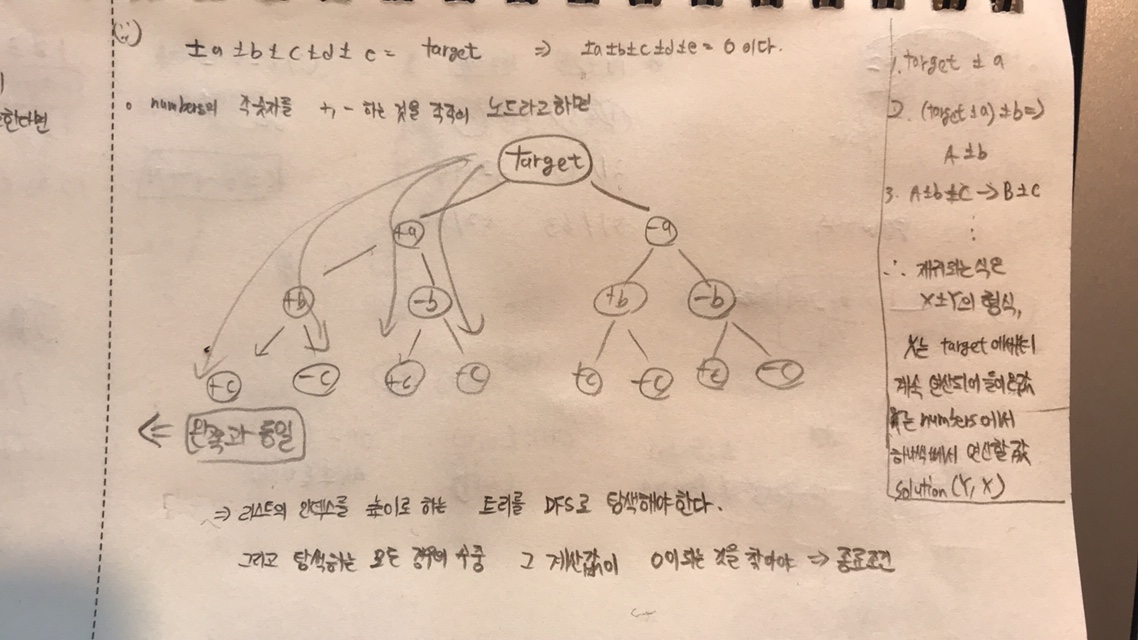 한다면
ii)
±a ±b ± c ±d ± c = target ⇒ ±a ±b ± c ±d ±e = 0 이다.
numbers의 각숫자를 +, - 하는 것을 각각의 노드라고하면
target
+a -a
+b -b +b -b
+c -c +c -c +c -c +c -c
⇐ 왼쪽과 동일
⇒ 리스트의 인덱스를 높이로 하는 트리를 DFS로 탐색해야한다.
그리고 탐색하는 모든 경우의 수중 그 계산값이 0이 되는 것을 찾아야 ⇒ 종료조건
1. target ± a
2. (target ± a) ± b ⇒
A ± b
3. A ± b ± C → B ± c
⋮
∴ 재귀되는 식은
X±Y의 형식,
X는 target에서부터
계속 연산되어 들어온값
Y는 numbers에서
하나씩빼서 연산할 값
solution (Y, X)